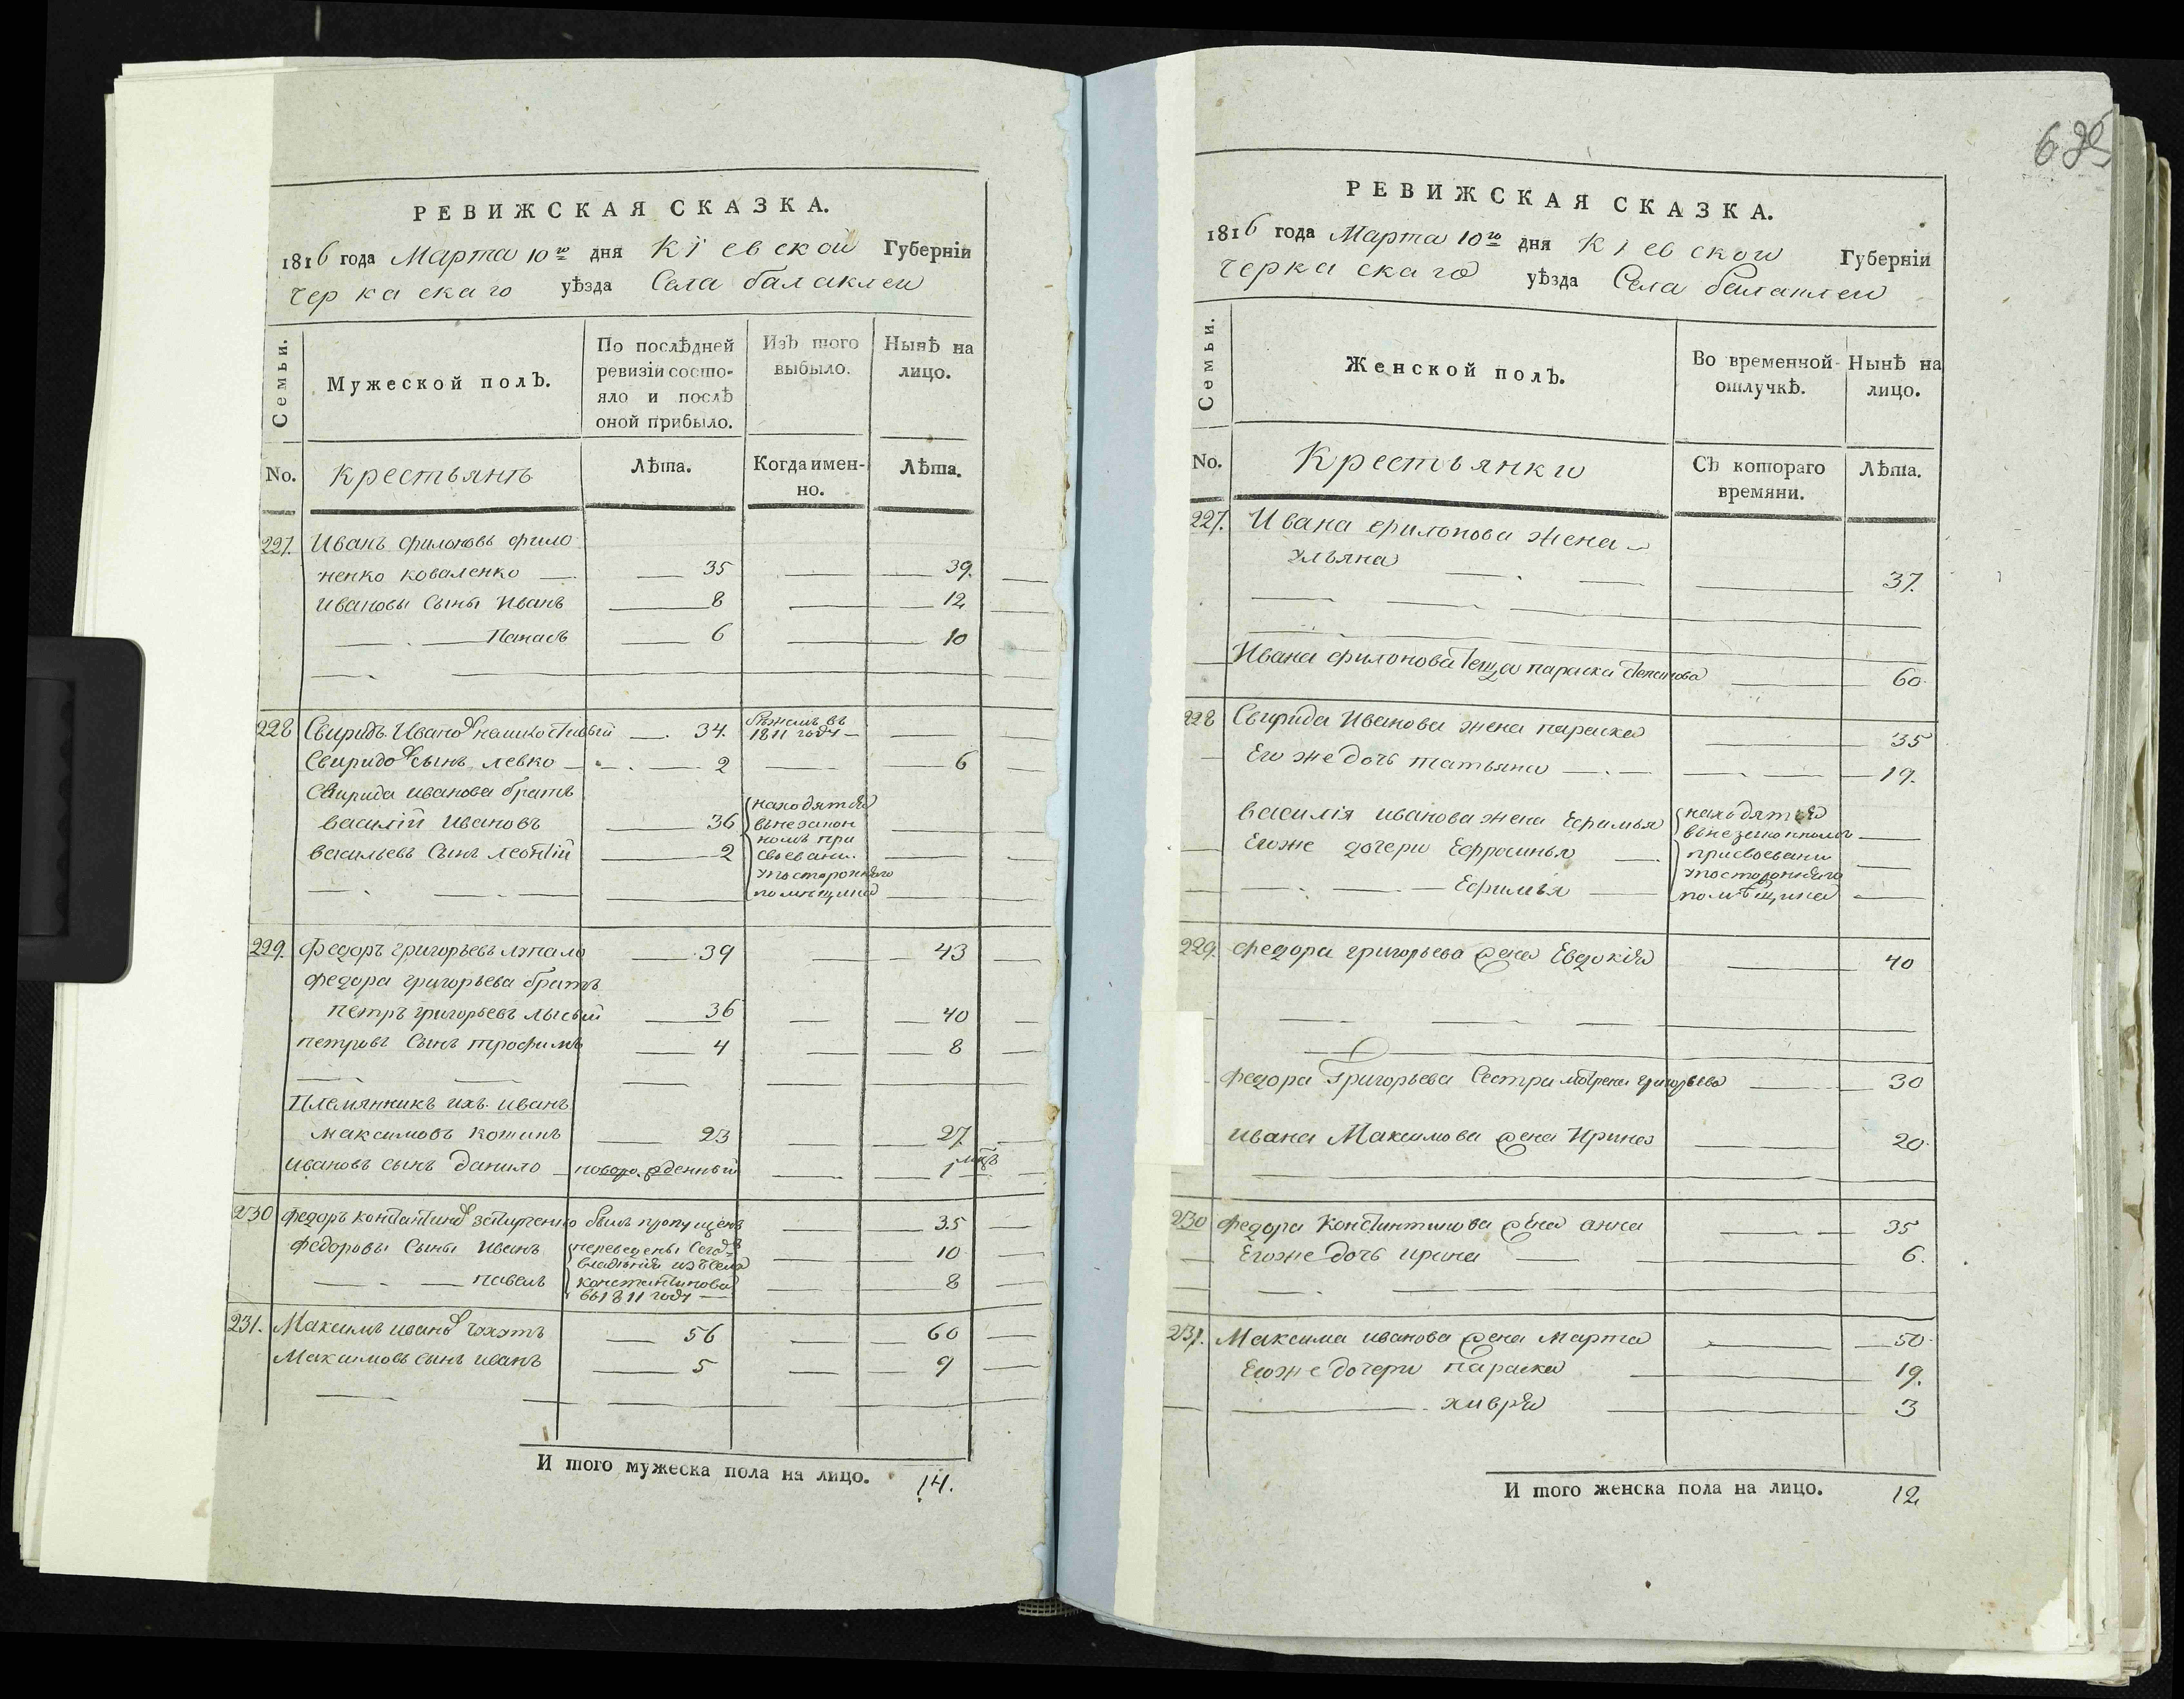 РЕВИЖСКАЯ СКАЗКА.
1816 года Марта 10го дня Кіевской Губерніи
Черкаскаго уѣзда Села балаклеи
Семьи.
Мужеской полъ.
По послѣдней
ревизіи состо-
яло и послѣ
оной прибыло.
Изъ того
выбыло.
Нынѣ на
лицо.
No.
Крестьянъ
Лѣта.
Когда имен-
но.
Лѣта.
227. Иванъ филоновъ фило
ненко коваленко — 35 — 39.
Ивановы Сыны Иванъ — 8 — 12
Панасъ — 6 — 10
228 Свиридъ Ивановъ — 34. бѣжалъ въ
1811 году —
Свиридовъ сынъ левко — 2 — 6
Свирида иванова братъ
василій Ивановъ — 36
васильевъ Сынъ леонтій — 2
находятся
внезакон
номъ при
своении
упосторонняго
помѣщика
229. Федоръ григорьевъ лупало — 39 — 43
федора григорьева братъ
петръ григорьевъ лысый — 36 — 40
петровъ Сынъ трофимъ — 4 — 8
Племянникъ ихъ иванъ
максимовъ — 23 — 27.
ивановъ сынъ данило — новорожденный — 1 мѣц
230 федоръ былъ пропущенъ — 35
федоровы Сыны Иванъ — 10
павелъ — 8
переведены
владѣнія изъ села
константинова
въ 1811 году —
231. Максимъ ивановъ — 56 — 60
Максимовъ сынъ иванъ — 5 — 9
И того мужеска пола на лицо. 14.
РЕВИЖСКАЯ СКАЗКА.
1816 года Марта 10го дня Кіевской Губерніи
Черкаскаго уѣзда Села балаклеи
Семьи.
Женской полъ.
Во временной
отлучкѣ.
Нынѣ на
лицо.
No.
Крестьянки
Съ котораго
времяни.
Лѣта.
227. Ивана филонова жена —
ульяна — 37.
Ивана филонова теща параска — 60.
228 Свирида Иванова жена параска — 35
Его же дочь татьяна — 19.
василія иванова жена Ефимья
Егоже дочери Ефросинья
Ефимья
находятся
внезаконномъ
присвоении
упосторонняго
помѣщика
229. федора григорьева жена Евдокія — 40
федора Григорьева Сестра мотрена григорьева — 30
ивана Максимова жена Ирина — 20.
230 федора Константинова жена анна — 35
Егоже дочь ирина — 6.
231. Максима иванова жена Марта — 50.
Егоже дочери параска — 19.
хивря — 3
И того женска пола на лицо. 12